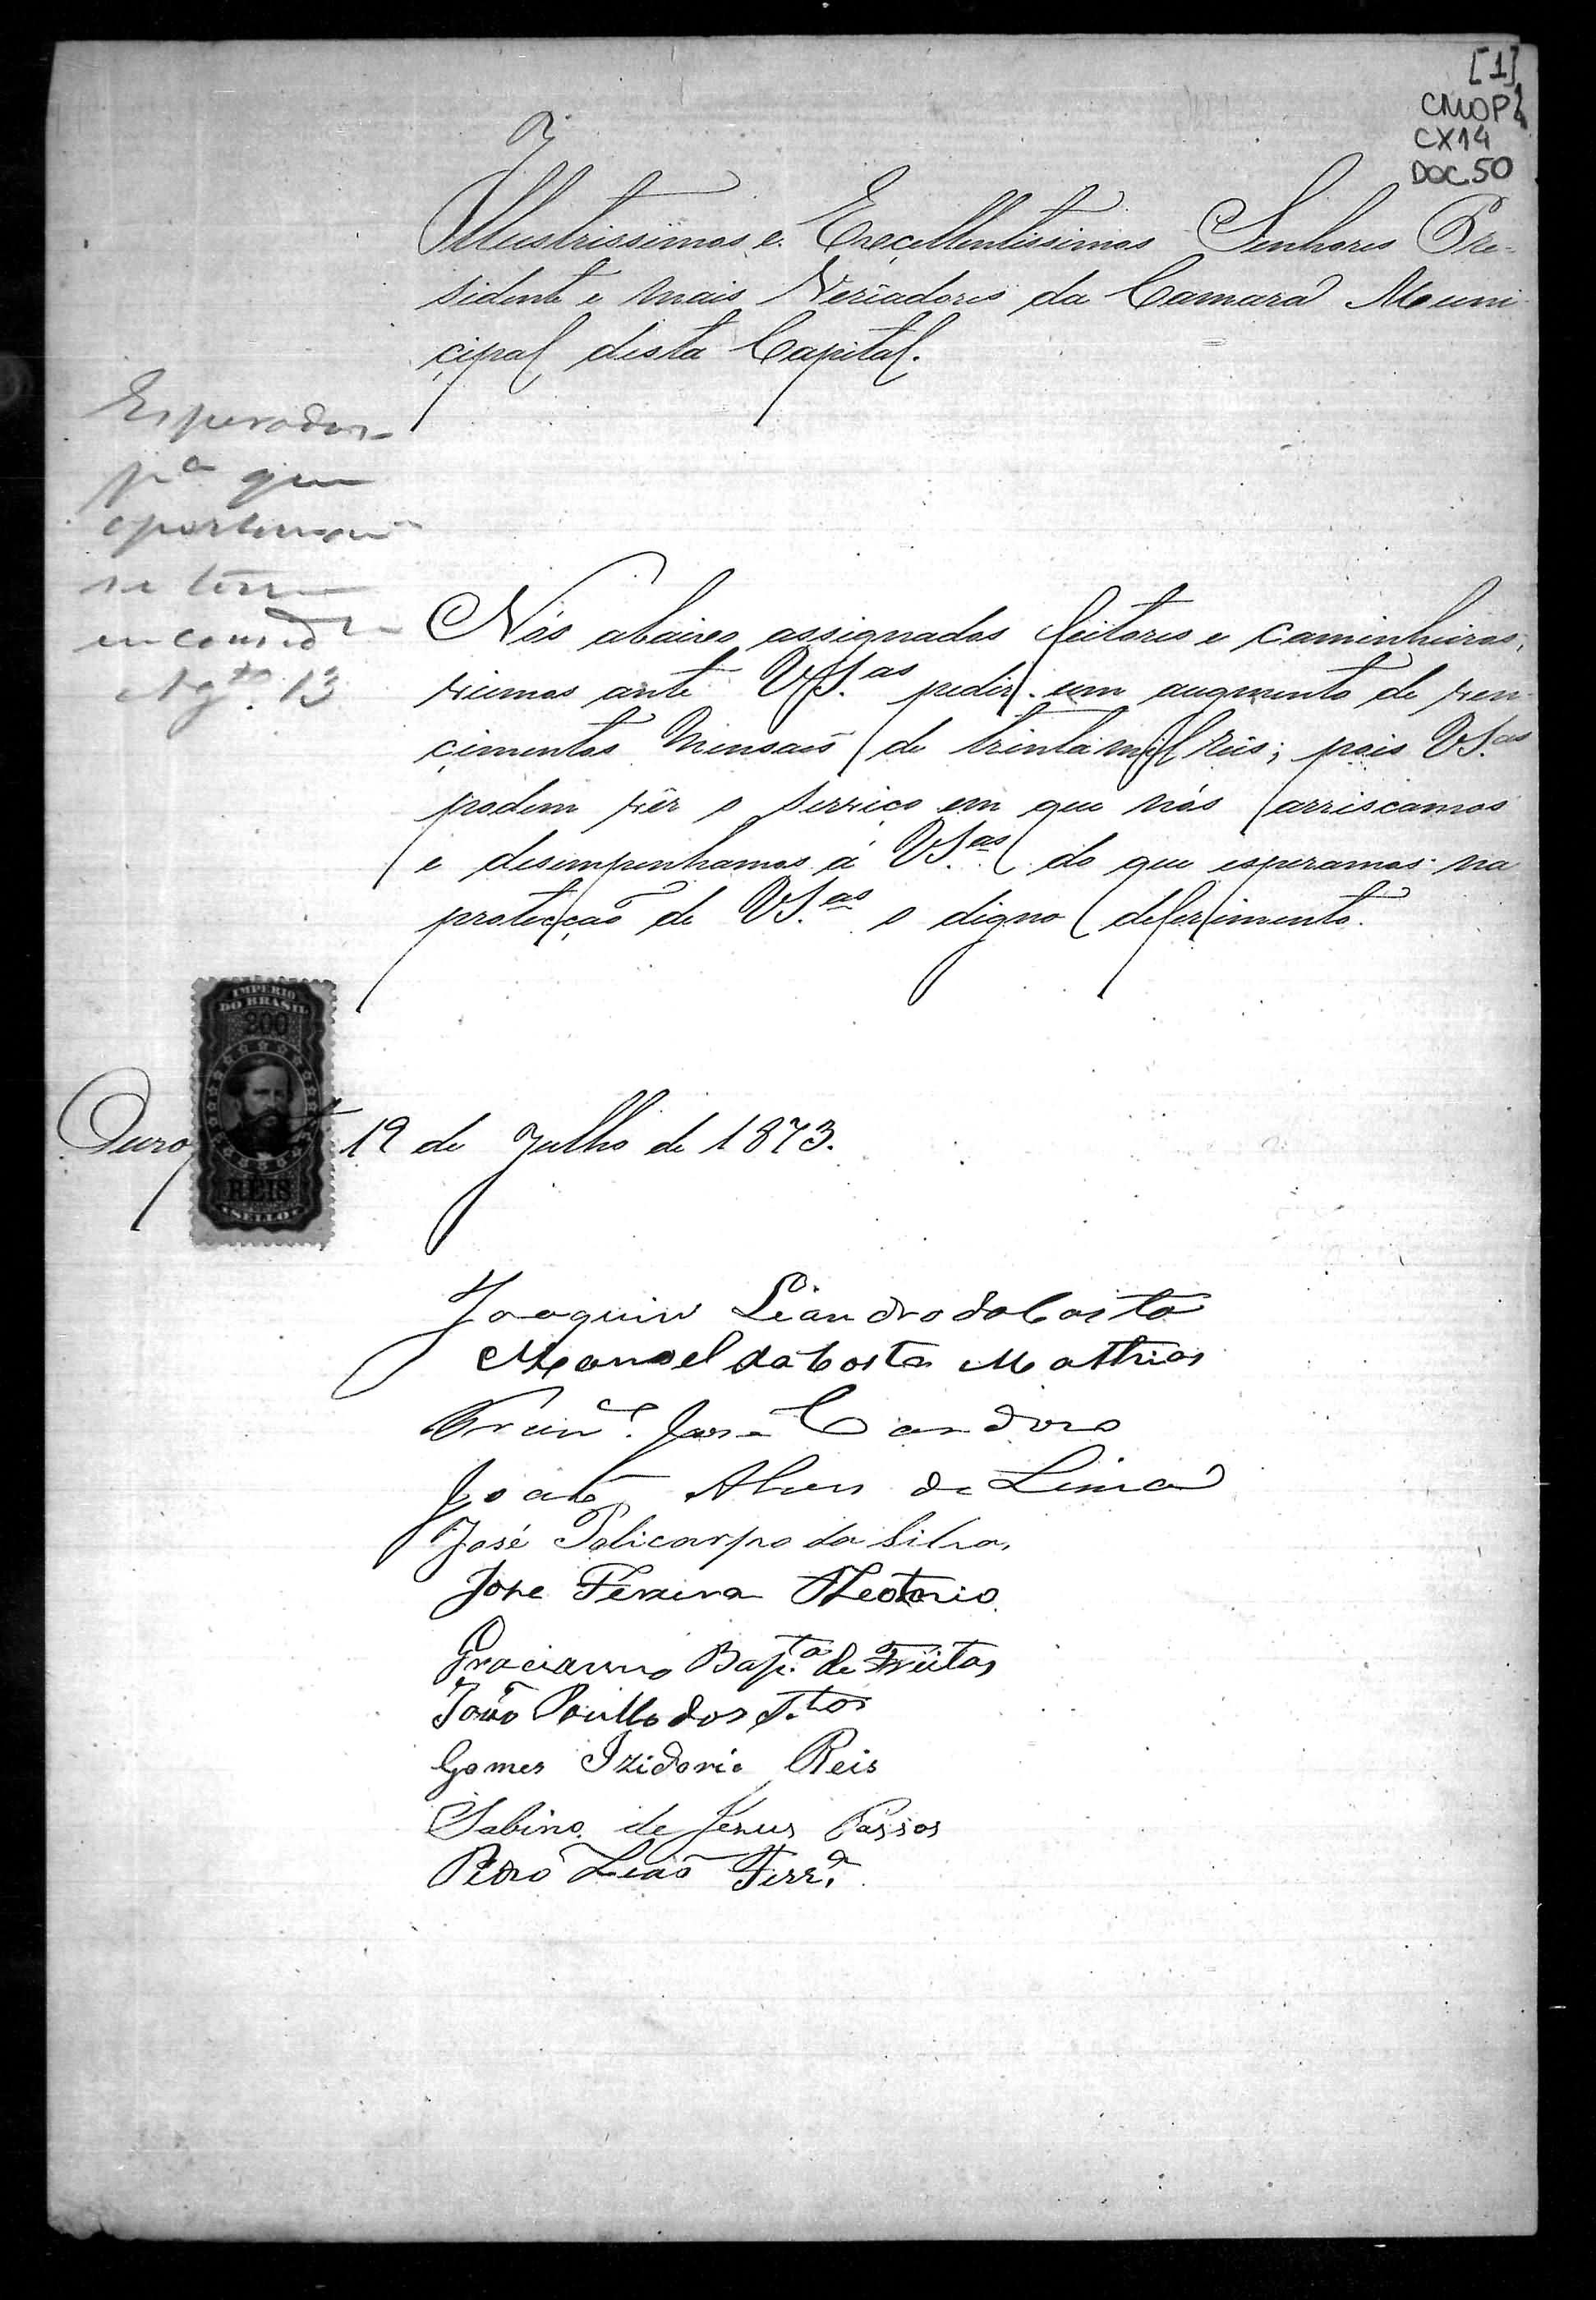 [1]
CMOP
CX14
DOC.50
Illustrissimos e Excellentissimos Senhores Pre-
sidente e mais Veriadores da Camara Muni
cipal desta Capital.
Esperados
pª que
se tome
em consid
Agto. 13
Nós abaixo assignados feitores e caminheiros,
viemos ante VS.as pedir um augmento de ven
cimentos Mensaes de trinta mil Réis; pois VS.as
podem vêr o serviço em que nós arriscamos
e desempenhamos á VS.as do que esperamos na
protecção de VS.as o digno deferimento.
IMPERIO
DO BRASIL
200
REIS
SELLO
Ouro 19 de Julho de 1873.
Joaquim Leandro da Costa
Manoel da Costa Mathias
Franc. José Cardoso
João Alves de Lima
José Policarpo da Silva
Jose Pereira Theotonio
Gracianno Bap.ta de Freitas
João Paullo dos S.tos
Gomes Izidorio Reis
Sabino de Jesus Passos
Pedro Leão Ferr.a